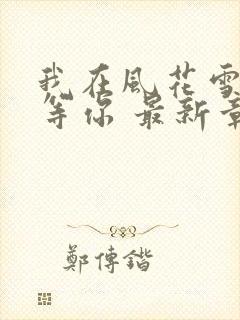 我在風花雪
等你 最新章
鄭傳鍇